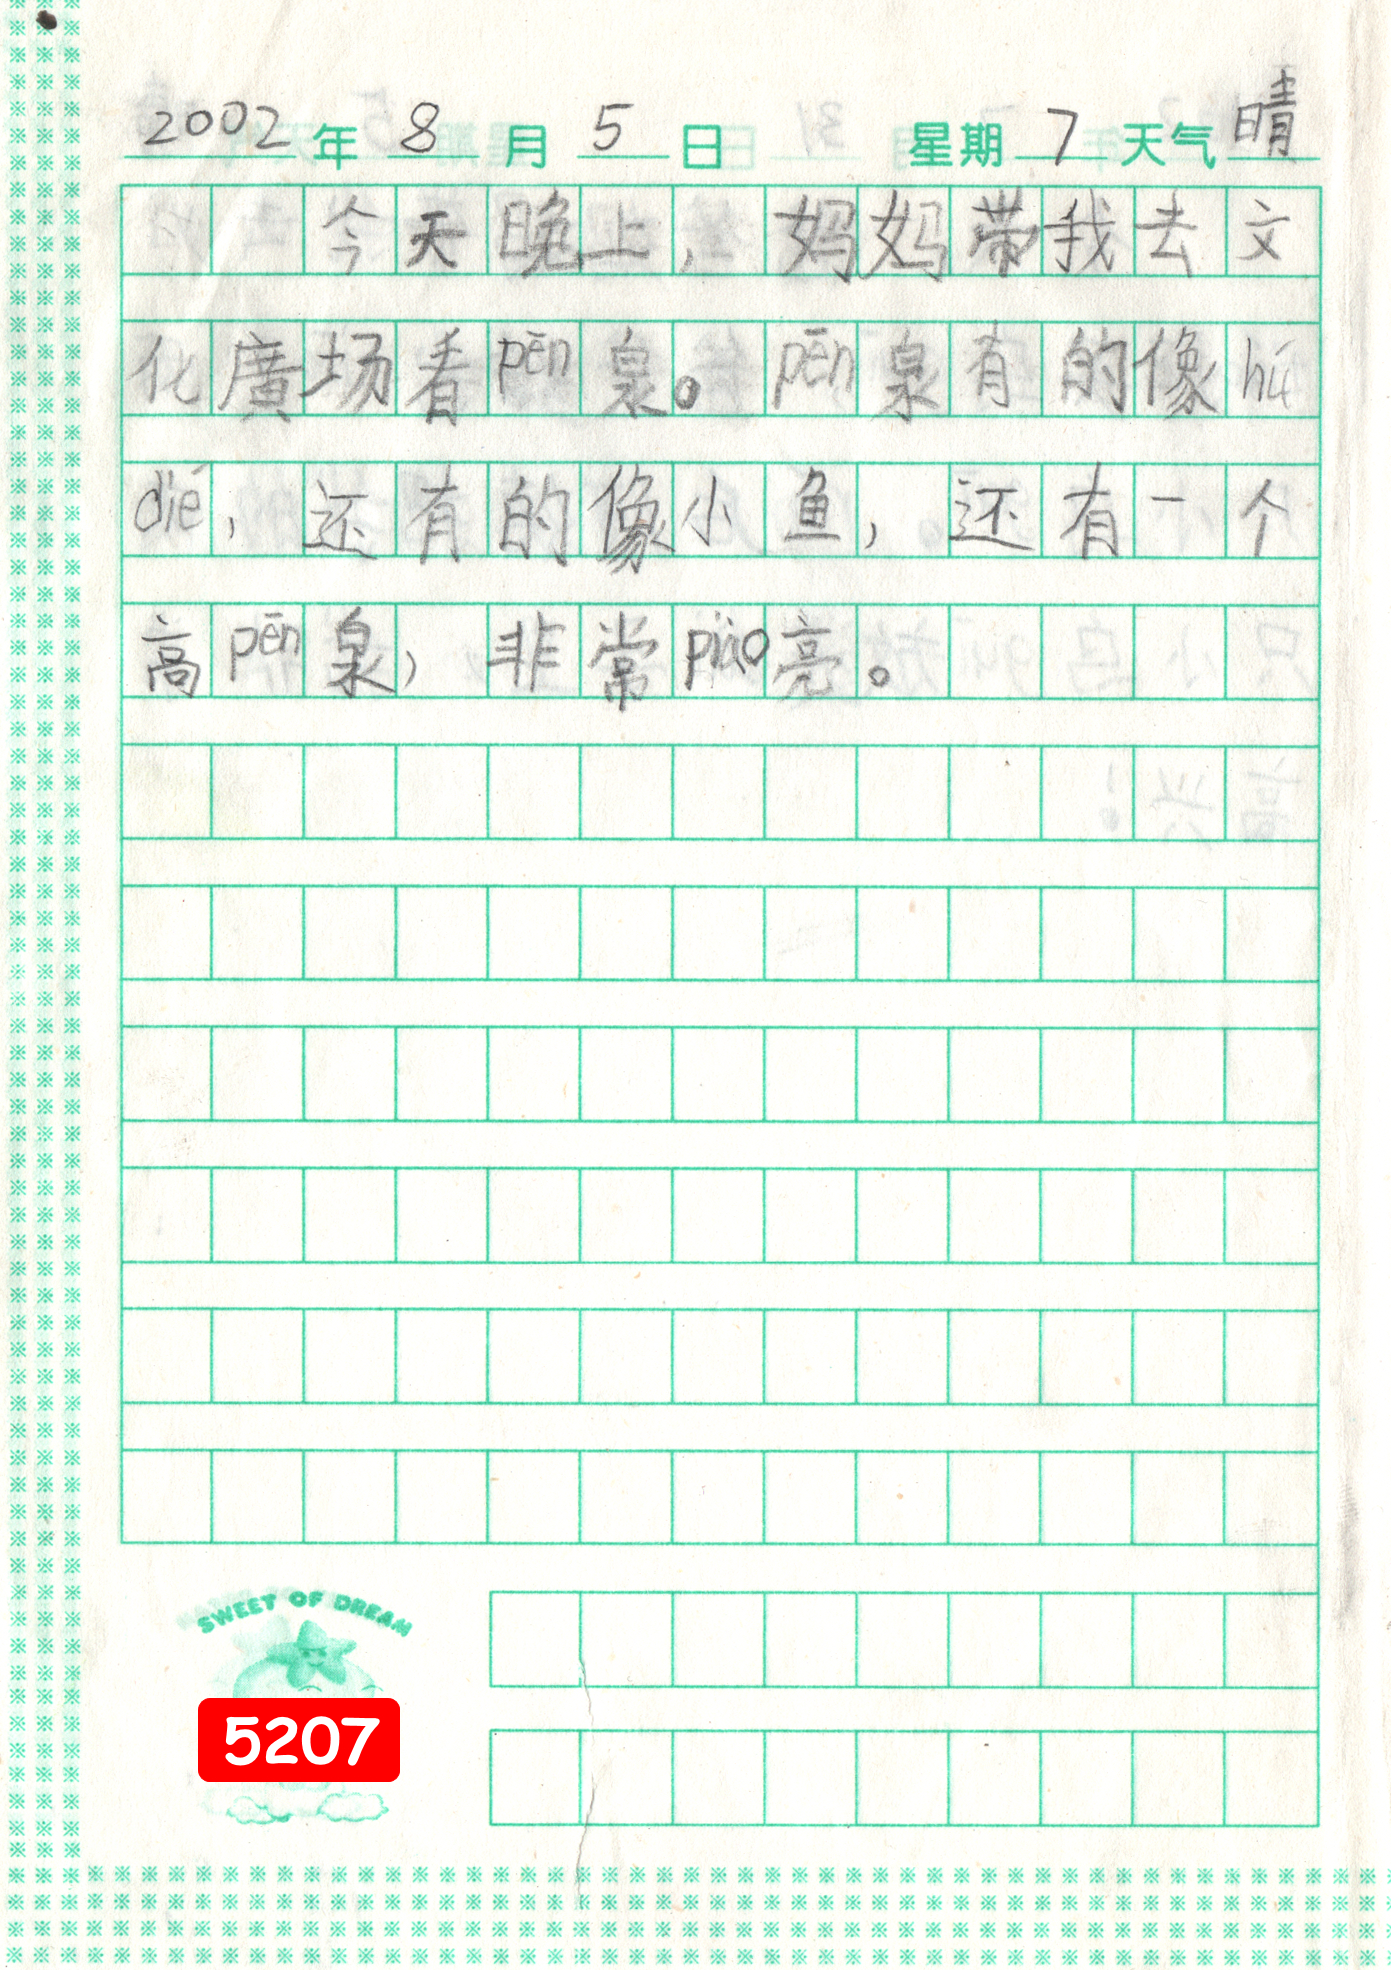 2002年8月5日 星期7天气晴
今天晚上，妈妈带我去文
化廣场看pēn泉。pēn泉有的像hú
dié，还有的像小鱼，还有一个
高pēn泉，非常piào亮。
SWEET OF DREAM
5207